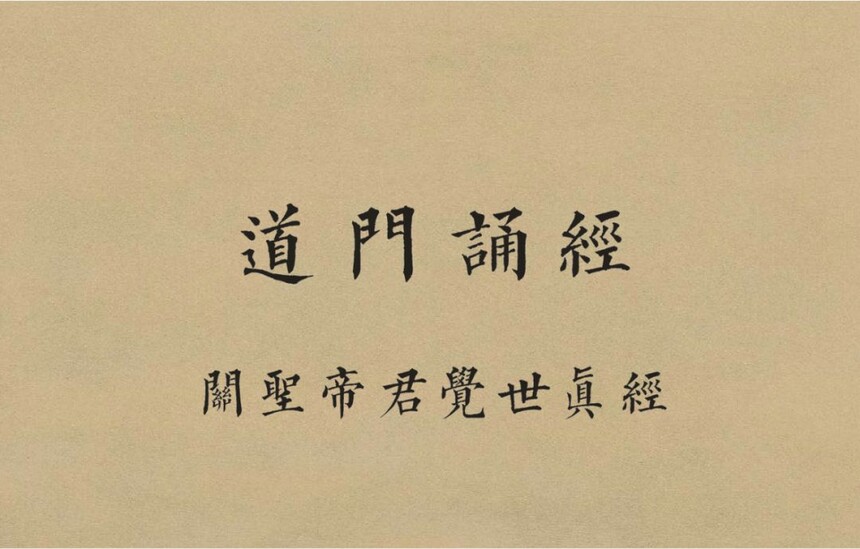 道門誦經
關聖帝君覺世眞經